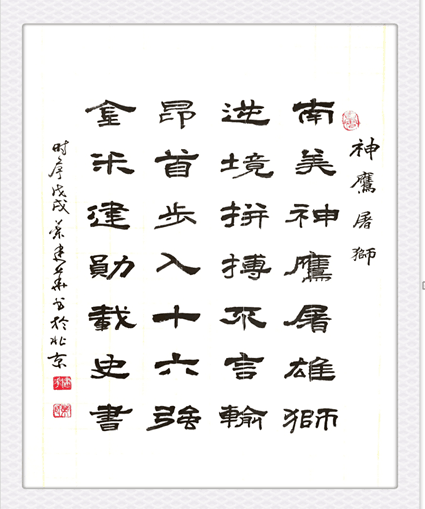 神鷹屠獅
南美神鷹屠雄獅
逆境拼搏不言輸
昂首步入十六強
金米建勛載史書
时序戊戌建华书於北京